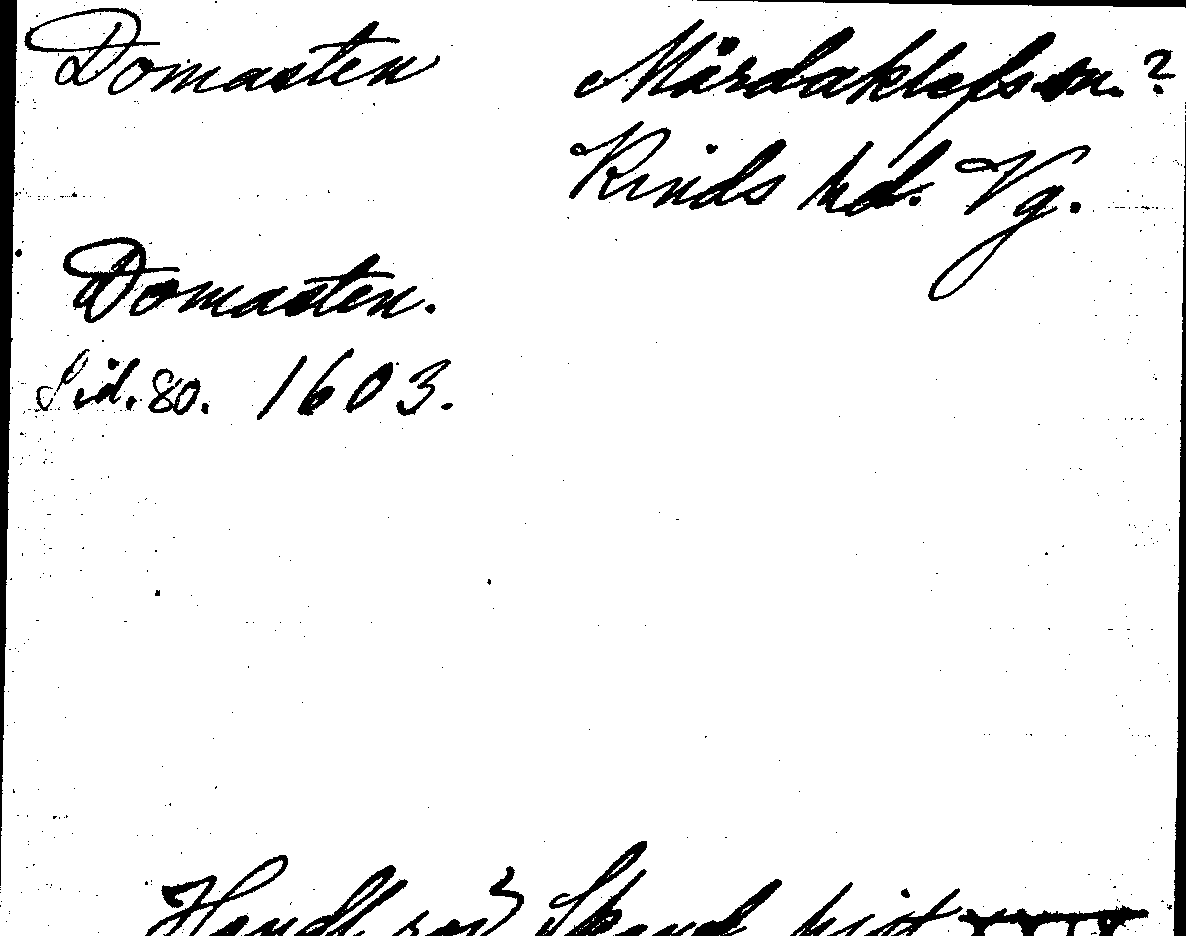 Domasten
Mårdaklefs sn.?
Kinds hd. Vg.
Domasten.
Sid. 80. 1603.
Handl. rör. Skand. hist